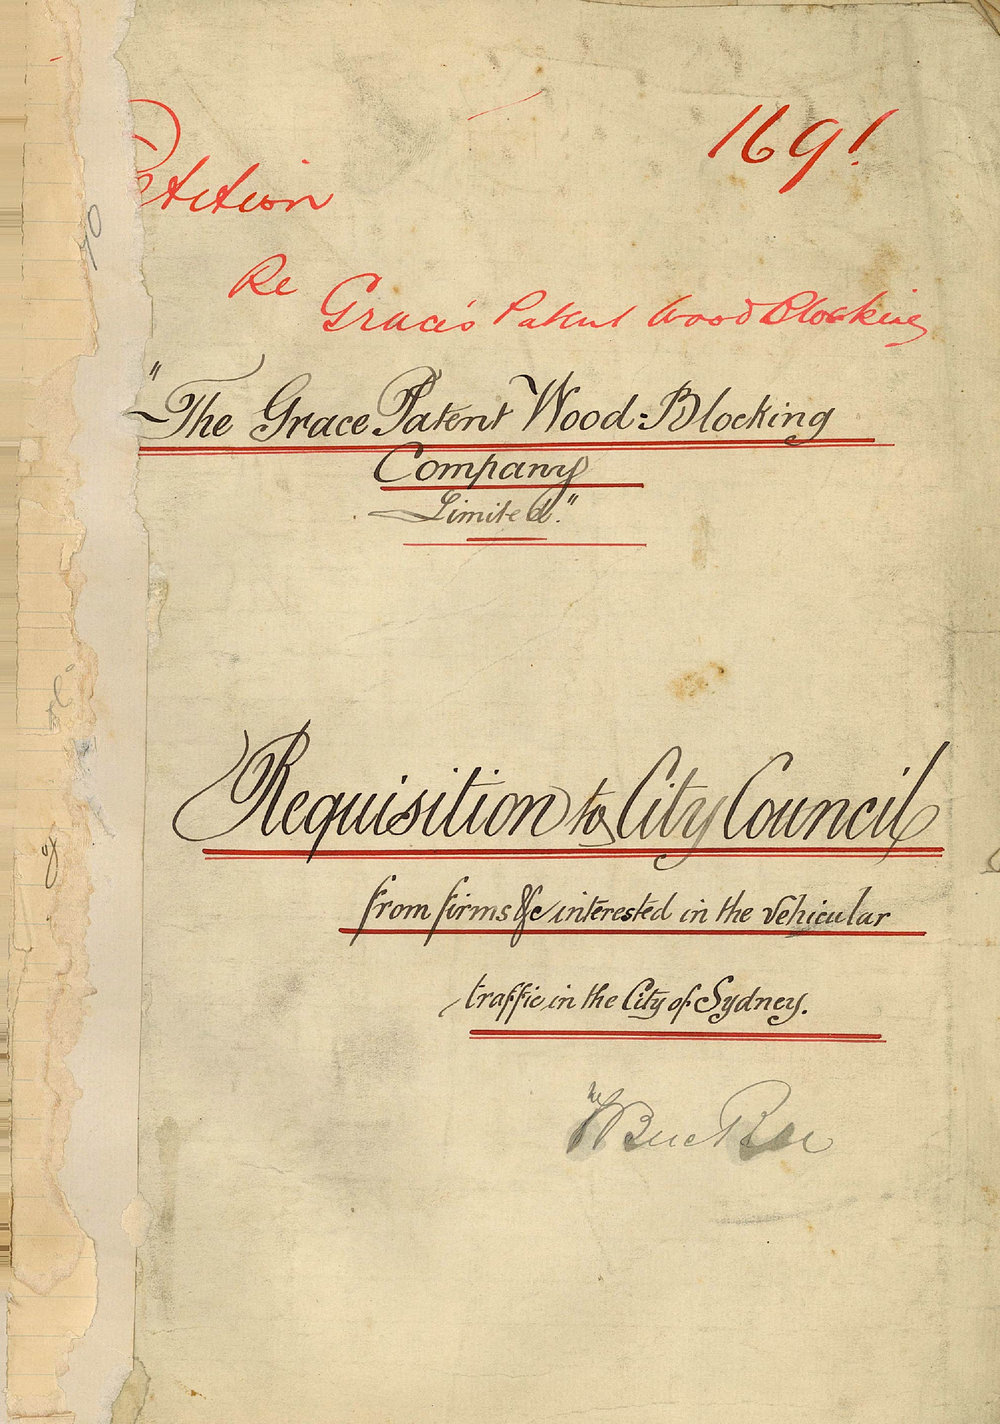 1691
Petition
Re Grace's Patent Wood Blocking
"The Grace Patent Wood-Blocking
Company
Limited."
Requisition to City Council
from firms &c interested in the vehicular
traffic in the City of Sydney.